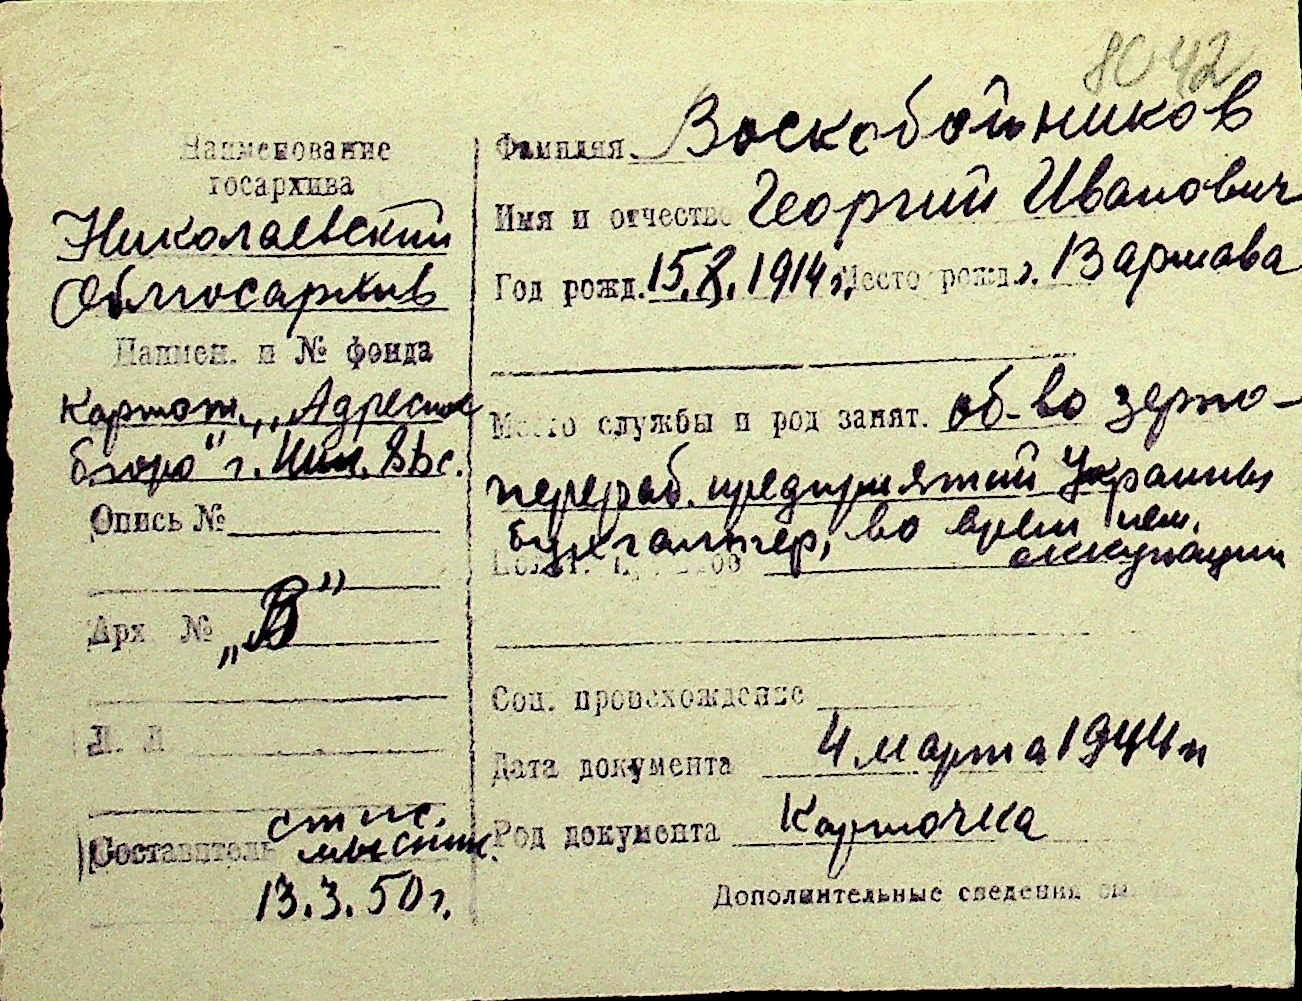 8042
Наименование
госархива
Николаевский
Облгосархив
Наимен. и № фонда
Картот. „Адресное
бюро" г.
Опись №
Арх №
„В"
Л. Л.
Составитель
13.3.50г.
Фамилия Воскобойников
Имя и отчество Георгий Иванович
Год рожд. 15.X.1914 г. Место рожд. г. Варшава
Место службы и род занят. об-во зерно-
перераб. предприятий Украины
бухгалтер, во врем нем.
оккупации
Соц. происхождение
Дата документа 4 марта 1944 г
Род документа Карточка
Дополнительные сведения см.